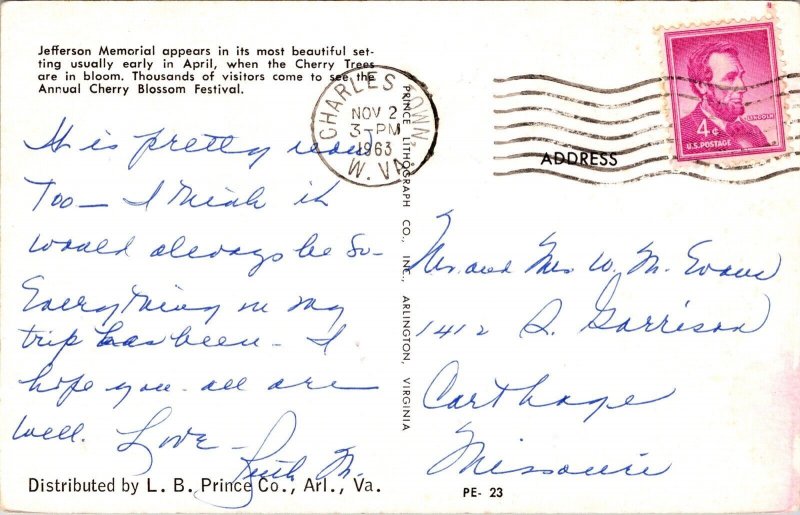 Jefferson Memorial appears in its most beautiful set-
ting usually early in April, when the Cherry Trees
are in bloom. Thousands of visitors come to see the
Annual Cherry Blossom Festival.
It is pretty now
Too — I think it
would always be so —
Everything on my
trip has been — I
hope you all are
well. Love —
Ruth M.
Distributed by L. B. Prince Co., Arl., Va.
PRINCE LITHOGRAPH CO., INC., ARLINGTON, VIRGINIA
CHARLES TOWN
NOV 2
3-PM
1963
W. VA.
4¢
LINCOLN
U.S. POSTAGE
ADDRESS
Mr. and Mrs W. M. Evans
1412 S. Garrison
Carthage
Missouri
PE- 23